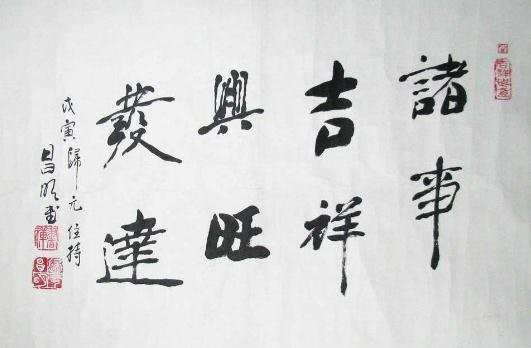 諸事
吉祥
興旺
發達
戊寅歸元住持
昌明書